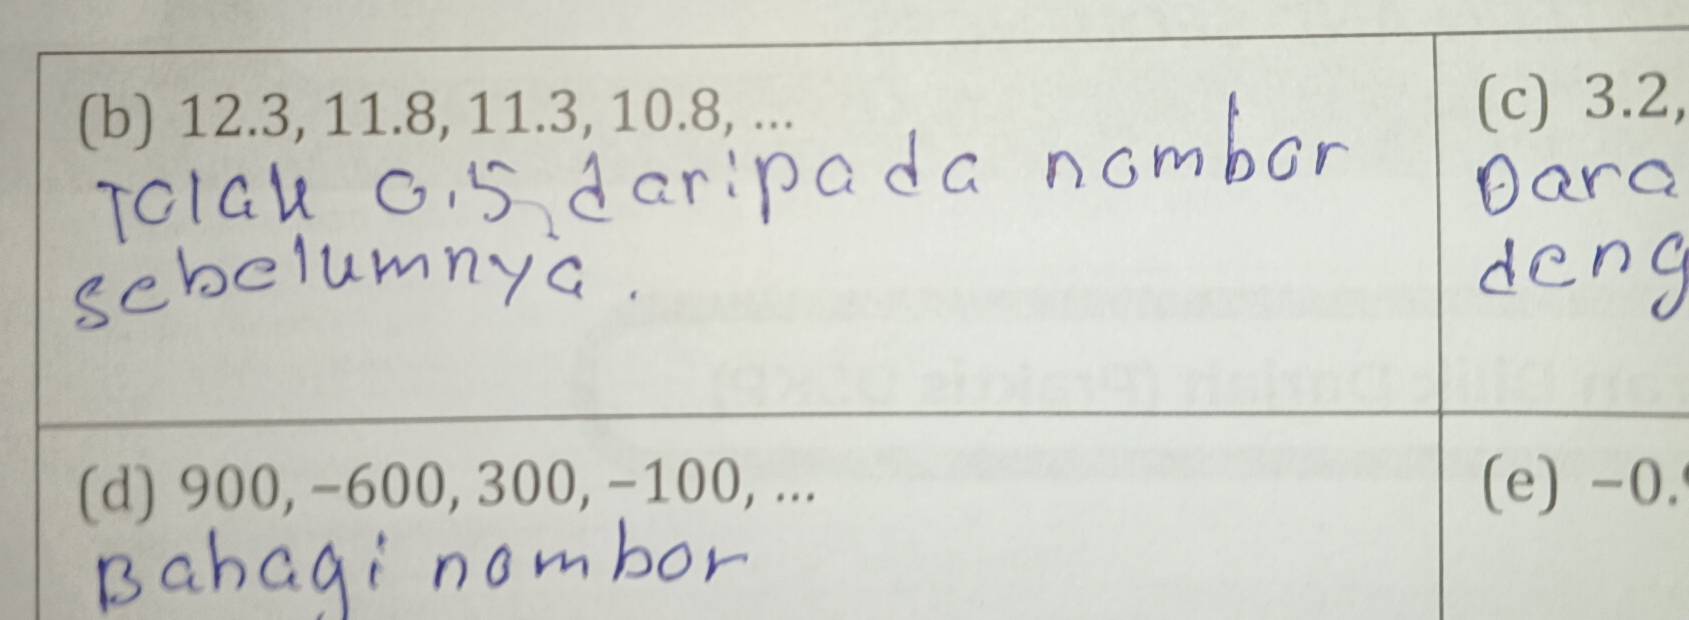 (b) 12.3, 11.8, 11.3, 10.8, ...
Tolak 0.5 daripada nombor
sebelumnya.
(c) 3.2,
Dara
deng
(d) 900, −600, 300, −100, ...
Bahagi nombor
(e) −0.